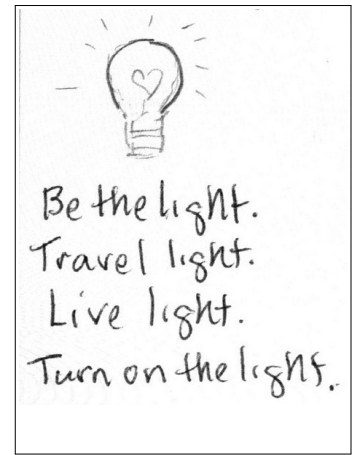 Be the light.
Travel light.
Live light.
Turn on the light.